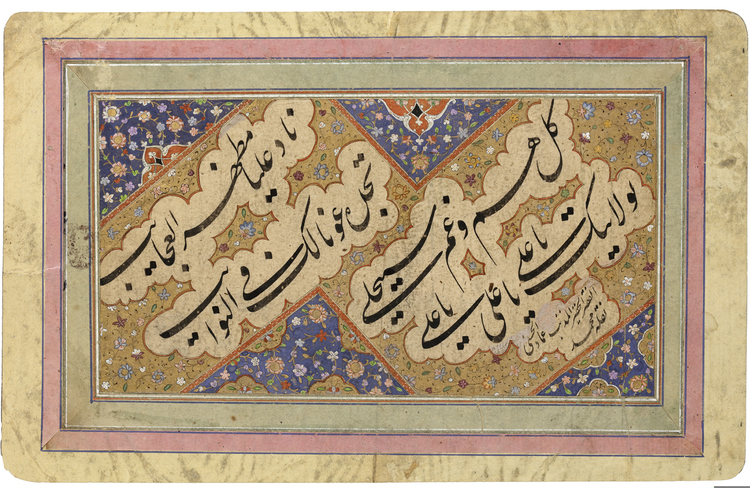 ناد علیا مظهر العجایب
تجده عونا لک فی النوایب
کل هم و غم سینجلی
بولایتک یا علی یا علی یا علی
المذنب عماد الحسنی